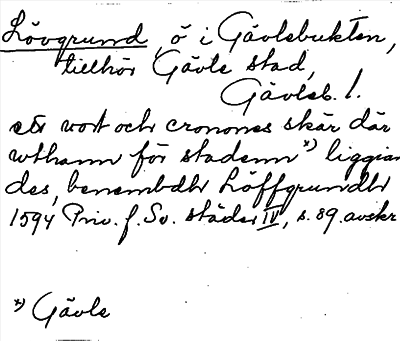 Lövgrund, ö i Gävlebukten,
tillhör Gävle stad,
Gävleb. l.
ett wort och cronones skär där
wthann för stadenn *) liggian
des, benembdtt Löffgrundtt
1594 Priv. f. Sv. städer IV, s. 89. avskr
*) Gävle